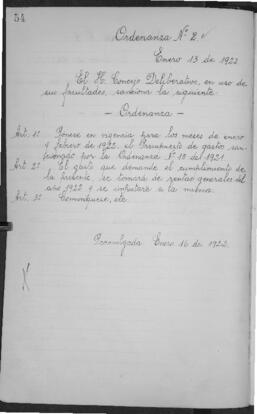 54
Ordenanza Nº 2
Enero 13 de 1922
El H. Concejo Deliberativo, en uso de
sus facultades, sanciona la siguiente:
- Ordenanza -
Art. 1º Ponese en vigencia para los meses de enero
y febrero de 1922, el Presupuesto de gastos san-
cionado por la Ordenanza Nº 18 de 1921.
Art. 2º El gasto que demande el cumplimiento de
la presente, se tomará de rentas generales del
año 1922 y se imputará a la misma.
Art. 3º Comuníquese, etc.
Promulgada Enero 16 de 1922.